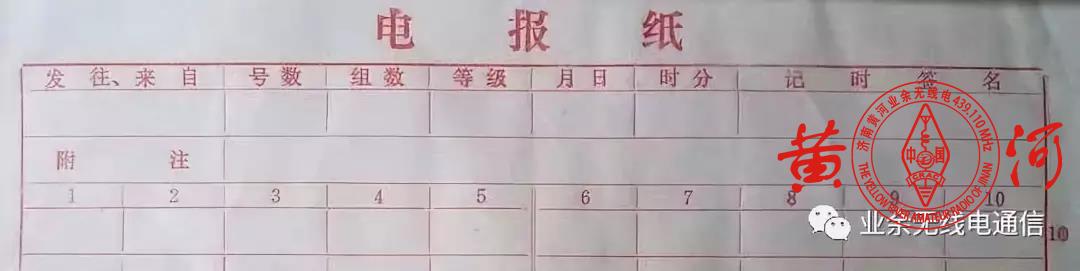 电报纸
发往、来自 号数 组数 等级 月日 时分 记时签名
附注
1 2 3 4 5 6 7 8 9 10
10
黄河
济南黄河业余无线电439.170MHz
中国
CRAC
THE YELLOW RIVER AMATEUR RADIO OF JINAN
业余无线电通信